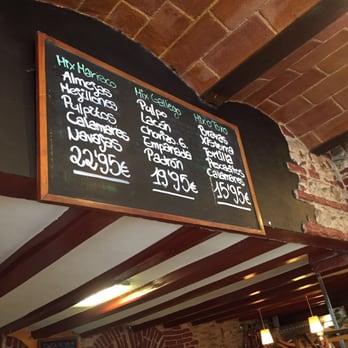 Mix Marisco
Almejas
Mejillones
Pulpitos
Calamares
Navajas
22'95€
Mix Gallego
Pulpo
Lacón
Chorizo. G
Empanada
Padrón
19'95€
Mix o Toxo
Bravas
Tortilla
Pescaditos
Calamares
15'95€